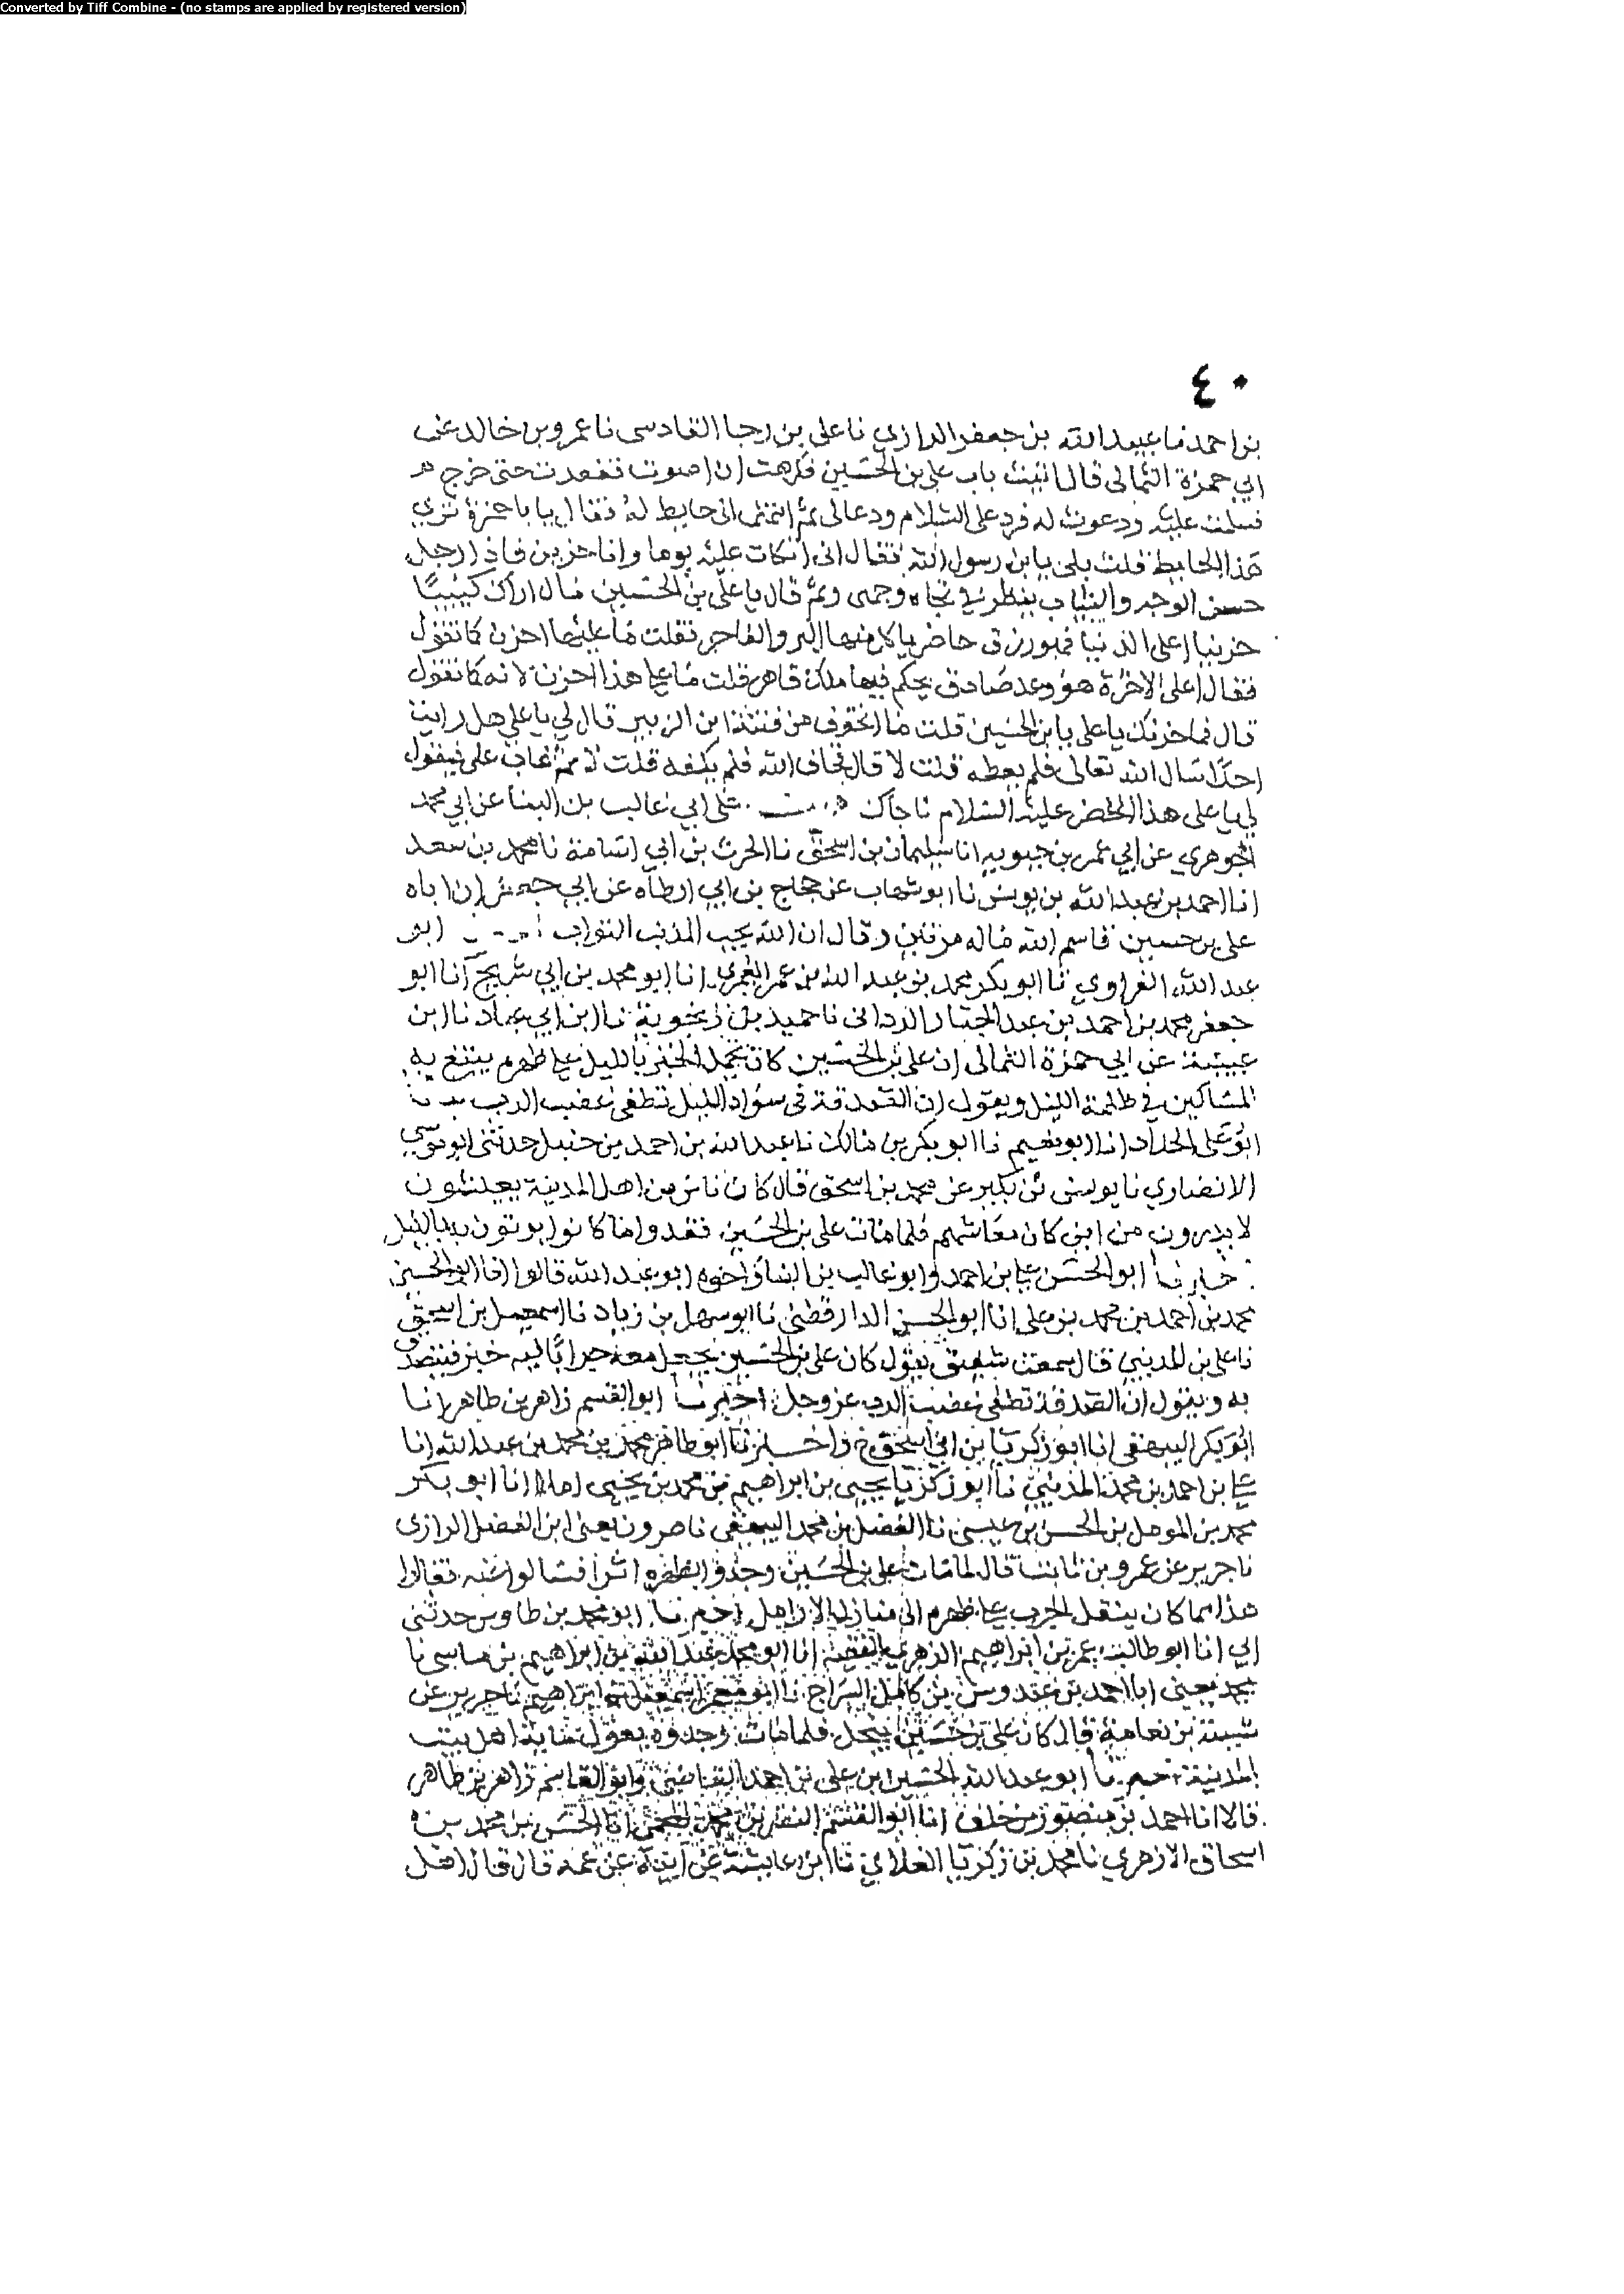 Converted by Tiff Combine - (no stamps are applied by registered version)
٤٠
بن احمد نا عبيد الله بن جعفر الرازي نا علي بن رجا القادسى نا عمرو بن خالد عن
ابي حمزة الثمالى قال اتيت باب علي بن الحسين فكرهت ان اصوت فقعدت حتى خرج
فسلمت عليه ودعوت له فرد على السلام ودعا لى ثم انتهى الى حايط له فقال يا با حمزة ترى
هذا الحايط قلت بلى يا بن رسول الله فقال انى اتكات عليه يوما وانا حزين فاذا رجل
حسن الوجه والثياب ينظر في تجاه وجهى ثم قال يا على بن الحسين مال اراك كييبا
حزينا اعلى الدنيا فهو رزق حاضر ياكل منها البر والفاجر فقلت ما عليها احزن كما تقول
فقال اعلى الاخرة هو وعد صادق يحكم فيها ملك قاهر قلت ما على هذا احزن لانه كما تقول
قال فما حزنك يا على يا بن الحسين قلت ما اتخوف من فتنة ابن الزبير قال لي يا علي هل رايت
احدا سال الله تعالى فلم يعطه قلت لا قال فخاف الله فلم يكفه قلت لا ثم غاب على فيقول
لي يا على هذا الخضر عليه السلام ناجاك على ابي غالب بن البنا عن ابي محمد
الجوهري عن ابي عمر بن حيويه انا سليمان بن اسحق نا الحرث بن ابي اسامة نا محمد بن سعد
انا احمد بن عبد الله بن يونس نا ابو شهاب عن حجاج بن ابي ارطاه عن ابي جعفر ان اباه
علي بن حسين قاسم الله ماله مرتين وقال ان الله يحب المذنب التواب ابو
عبد الله الفراوي نا ابو بكر محمد بن عبد الله بن عمر العمري انا ابو محمد بن ابي شريح انا ابو
جعفر محمد بن احمد بن عبد الجبار الردانى نا حميد بن زنجوية نا ابن ابي عباد نا ابن
عيينة عن ابي حمزة الثمالى ان على بن الحسين كان يحمل الخبز بالليل على ظهره يتبع به
المساكين في ظلمة الليل ويقول ان الصدقة فى سواد الليل تطفى غضب الرب
ابو على الحداد انا ابو نعيم نا ابو بكر بن مالك نا عبد الله بن احمد بن حنبل حدثنى ابو موسى
الانصاري نا يونس بن بكير عن محمد بن اسحق قال كان ناس من اهل المدينة يعيشون
لا يدرون من اين كان معاشهم فلما مات على بن الحسين فقدوا ما كانوا يوتون به بالليل
اخبرنا ابو الحسن علي بن احمد وابو غالب بن البنا واخوه ابو عبد الله قالوا انا ابو الحسين
محمد بن احمد بن محمد بن على انا ابو الحسن الدارقطنى نا ابو سهل بن زياد نا اسمعيل بن اسحق
نا على بن المديني قال سمعت سفين يقول كان على بن الحسين يحمل معه جرابا فيه خبز فيتصدق
به ويقول ان الصدقة تطفى غضب الرب عز وجل اخبرنا ابو القسم زاهر بن طاهر انا
ابو بكر البيهقى انا ابو زكريا بن ابي اسحق ح واخبرنا ابو طاهر محمد بن محمد بن عبد الله انا
علي بن احمد بن محمد المديني نا ابو زكريا يحيى بن ابراهيم بن محمد بن يحيى املاا انا ابو بكر
محمد بن المومل بن الحسن بن عيسى نا الفضل بن محمد البيهقى نا هرون يعنى ابن الفضل الرازى
نا جرير عن عمرو بن ثابت قال لما مات على بن الحسين وجدوا بظهره اثرا فسالوا عنه فقالوا
هذا مما كان ينقل الجرب على ظهره الى منازل الارامل اخبرنا ابو محمد بن طاوس حدثنى
ابي انا ابو طالب عمر بن ابراهيم الزهري الفقيه انا ابو محمد عبد الله بن ابراهيم بن ماسى نا
محمد يعنى ابا احمد بن عبدوس بن كامل السراج نا ابو معمر اسمعيل بن ابراهيم نا جرير عن
شيبة بن نعامة قال كان على بن حسين يبخل فلما مات وجدوه يعول ماية اهل بيت
بالمدينة اخبرنا ابو عبد الله الحسين بن على بن احمد القاضى وابو القاسم زاهر بن طاهر
قالا انا احمد بن منصور بن خلف انا ابو القسم النضر بن محمد انا الحسن بن محمد بن
اسحاق الازهري نا محمد بن زكريا الغلابي نا ابن عايشة عن ابيه عن عمه قال قال اهل